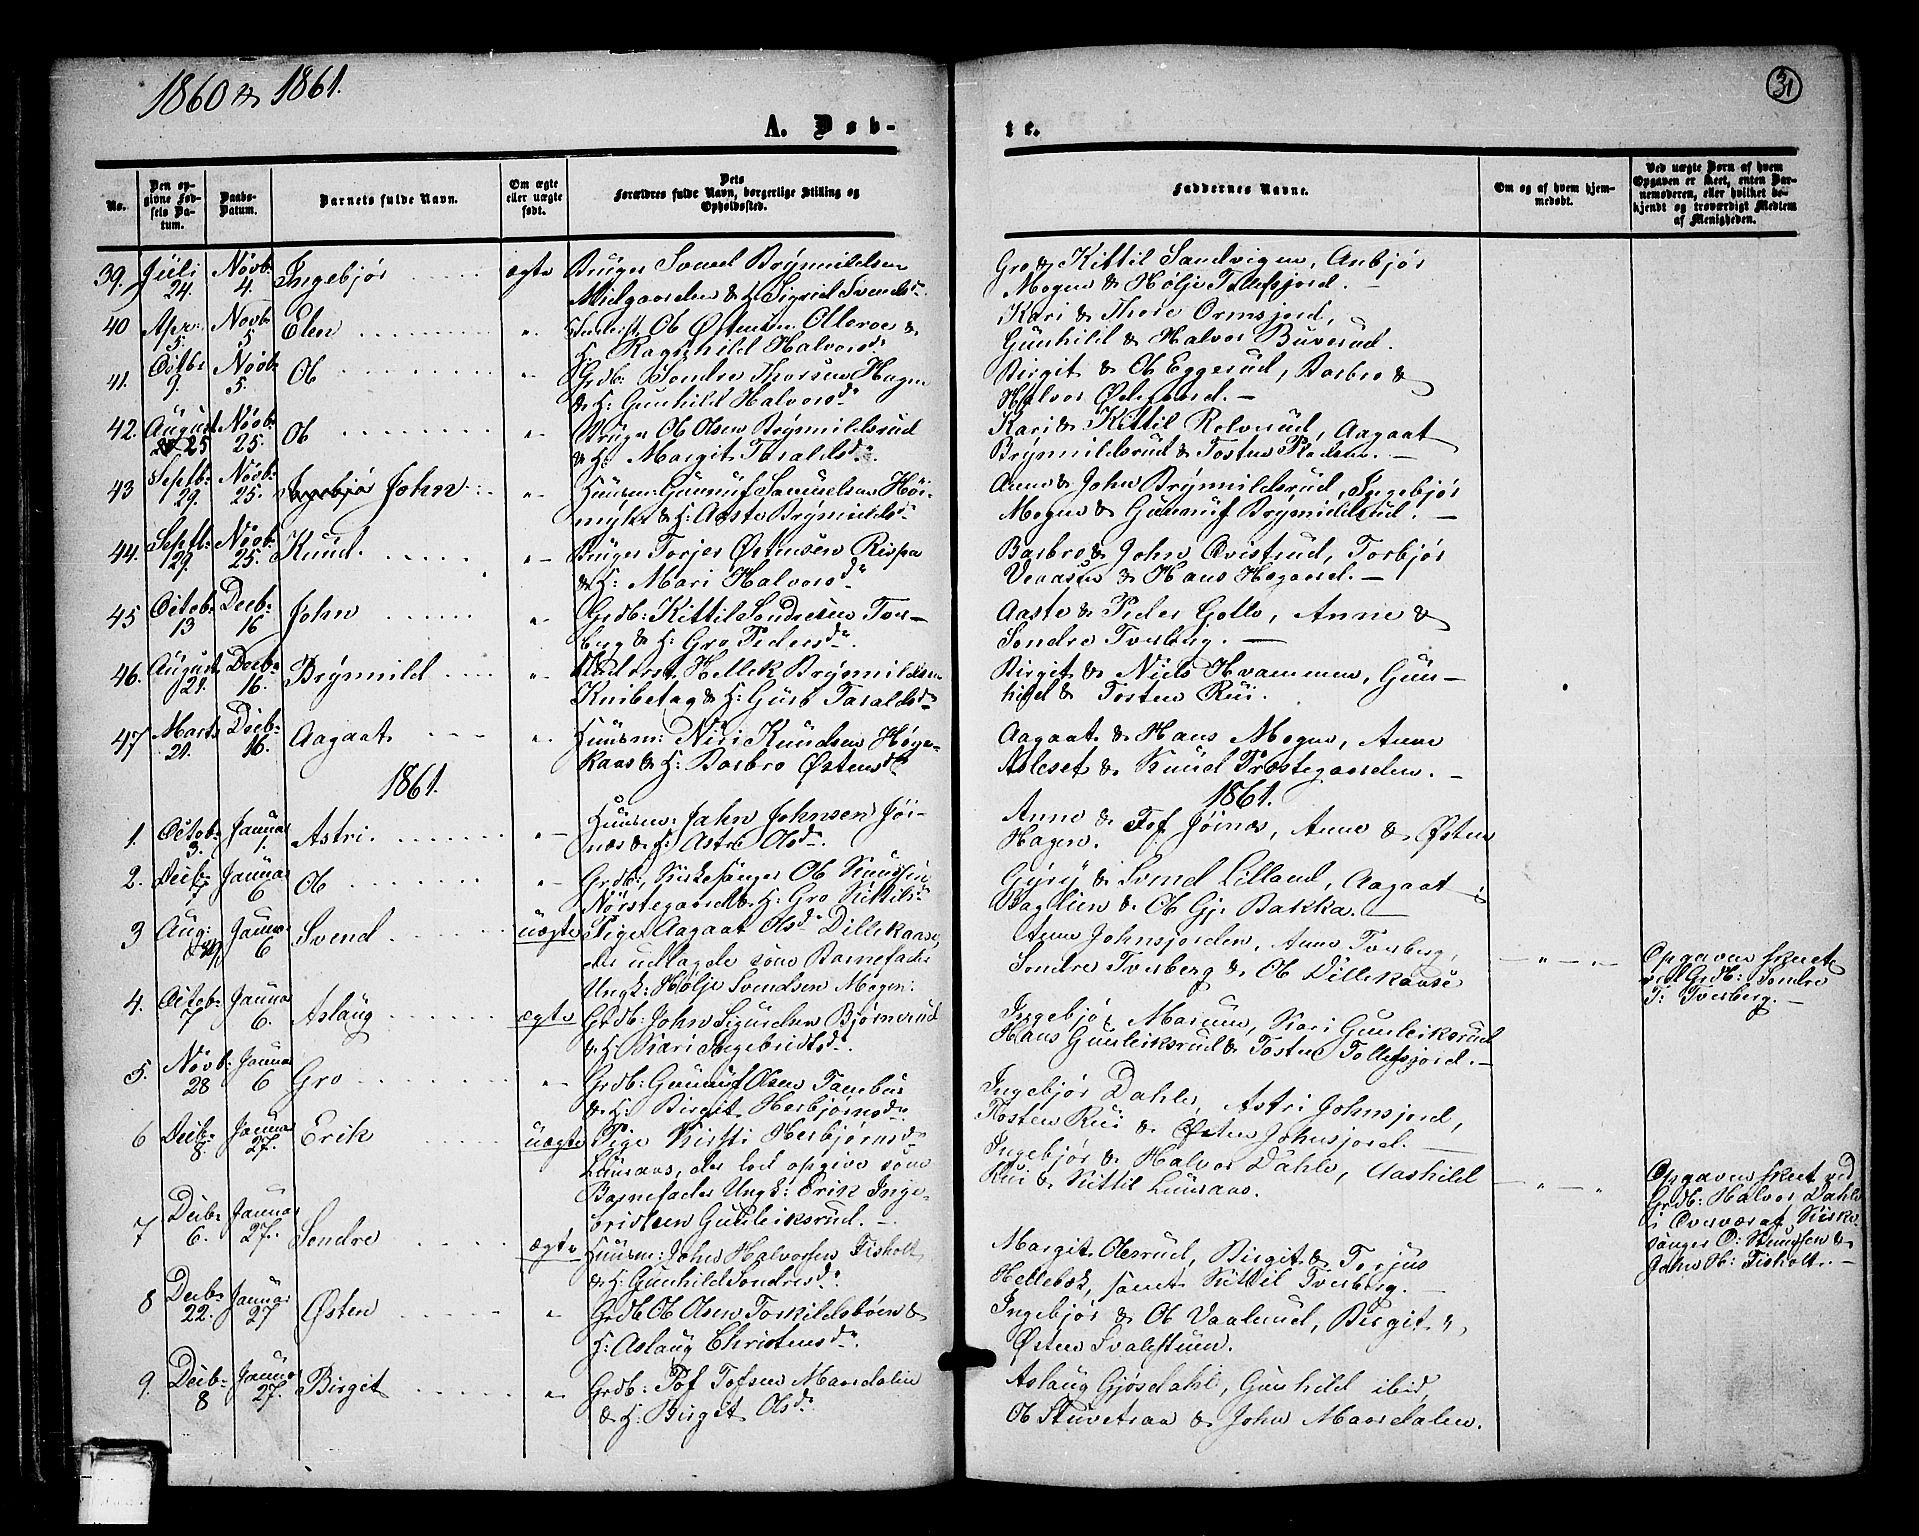 1860 & 1861.
31
A. Døb-
te.
No.
Den op-
givne Fød-
sels Da-
tum.
Daabs-
Datum.
Barnets fulde Navn.
Om ægte
eller uægte
født.
Dets
Forældres fulde Navn, borgerlige Stilling og
Opholdssted.
Faddernes Navne.
Om og af hvem hjem-
medøbt.
Ved uægte Børn af hvem
Opgaven er skeet, enten Bar-
nemoderen, eller hvilket be-
kjendt og troværdigt Medlem
af Menigheden.
39. Juli 24. Novb: 4. Ingebjør ægte Bruger Svend Brynnildsen
Midgaarden & H: Sigrid Svendsd:
Gro & Kittil Sandvigen, Anbjør
Mogen & Hølje Tollefsjord. —
40 Apr: 5. Novb: 5 Elen " Ole Østensen Olleroe &
H: Ragnhild Halvorsd:
Kari & Thore Ormsjord,
Gunhild & Halvor Buverud.
41. Octbr 9. Novb: 5. Ole " Grdb: Søndre Thorsen Hagen
& H: Gunhild Halvorsd:
Birgit & Ole Eggerud, Barbro &
Halvor Ødegaard. —
42. August 25 Novb: 25. Ole " Bruger Ole Olsen Brynnildsrud
& H: Margit Taraldsd:
Kari & Kittil Rolverud, Aagaat
Brynnildsrud & Tosten Pladsen. —
43 Septb: 29. Novb: 25. John " Huusm: Gunnuf Samuelsen Høi-
myhr & H: Aaste Brynnildsd:
Anne & John Brynnildsrud, Ingebjør
Mogen & Gunnuf Brynnildsrud. —
44. Septb: 29. Novb: 25. Knud. " Bruger Torjer Østensen Rispa
& H: Mari Halvorsd:
Barbro & John Qvistrud, Torbjør
Veaasen & Hans Hogaard. —
45 Octob: 13 Decb: 16 John " Grdb: Kittil Sondresen Tver-
berg & H: Gro Pedersd:
Aaste & Peder Gollo, Anne &
Sondre Tverberg. —
46. August 21. Decb: 16. Brynnild " Hellek Brynnildsen
Knibetag & H: Guro Taraldsd:
Birgit & Niels Hvammen, Gun-
hild & Tosten Rui.
47 Marts 21. Decb: 16. Aagaat " Huusm: Niri Knudsen Høge-
kaas & H: Barbro Østensd:
Aagaat & Hans Mogen, Anne
Asleset & Knud Træstegaarden. —
1861.
1861.
1. Octob: 3. Januar 1. Astri " Huusm: John Johnsen Jøi-
næs & H: Astri Olsd:
Anne & Tof Jøinæs, Anne & Østen
Hagen.
2. Decb: 7 Januar 6 Ole " Grdb:, Kirkesanger Ole Knudsen
Nørstegaard & H: Gro Kittilsd:
Gyry & Svend Lilland, Aagaat
Baglien & Ole Gj. Bakka. —
3 Aug: Januar 6 Svend uægte Pige Aagaat Olsd: Dillekaase,
der udlagde som Barnefader
Ungk: Hølje Svendsen Mogen:
Anne Johnsjorden, Anne Tverberg,
Sondre Tverberg & Ole Dillekaase
— " — " —
Opgaven skeet
ved Grdb: Sondre
T: Tverberg. —
4. Octob: 7 Januar 6. Aslaug ægte Grdb: John Sigurdsen Bjørnerud
& H: Kari Ingebrictsd:
Ingebjør Maruen, Kari Gunleiksrud
Hans Gunleiksrud & Tosten Tollefsjord. —
5. Novb: 28 Januar 6 Gro " Grdb: Gunnuf Olsen Tambur
& H: Birgit Herbjørnsd:
Ingebjør Dahle, Astri Johnsjord,
Tosten Rui & Østen Johnsjord. —
6 Decb: 8. Januar 27. Erik uægte Pige Kirsti Herbjørnsd:
Luuraas, der lod opgive som
Barnefader Ungk: Erik Inge-
brictsen Gunleiksrud. —
Ingebjør & Halvor Dahle, Aashild
Rui & Kittil Luuraas.
— " — "
Opgaven skeet ved
Grdb: Halvor Dahle
i Overvær af Kirke-
sanger O: Knudsen &
John H: Fisholt. —
7 Decb: 6. Januar 27. Sondre ægte Huusm: John Halvorsen Fisholt
& H: Gunhild Sondresd:
Margit Olesrud, Birgit & Torjus
Hellebæk, samt Kittil Tverberg. —
8 Decb: 22. Januar 27 Østen " Grdb. Ole Olsen Torkildsbøen &
H: Aslaug Christensd:
Ingebjør & Ole Vaalerud, Birgit &
Østen Svalestuen.
9. Decb: 8 Januar 27. Birget " Grdb: Tof Tofsen Maardalen
& H: Birget Olsd:
Aslaug Gjøsdahl, Gunhild ibid,
Ole Stuvetraa & John Maardalen.